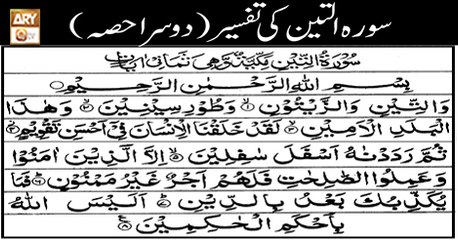 ARY
Qtv
سورہ التین کی تفسیر ( دوسرا حصہ )
سُوْرَةُ التِّيْنِ مَكِّيَّةٌ وَّهِيَ ثَمَانِيْ اٰيَاتٍ
بِسْمِ اللهِ الرَّحْمٰنِ الرَّحِيْمِ
وَالتِّيْنِ وَالزَّيْتُوْنِ ۝۱ وَطُوْرِ سِيْنِيْنَ ۝۲ وَهٰذَا
الْبَلَدِ الْاَمِيْنِ ۝۳ لَقَدْ خَلَقْنَا الْاِنْسَانَ فِيْٓ اَحْسَنِ تَقْوِيْمٍ ۝۴
ثُمَّ رَدَدْنٰهُ اَسْفَلَ سٰفِلِيْنَ ۝۵ اِلَّا الَّذِيْنَ اٰمَنُوْا
وَعَمِلُوا الصّٰلِحٰتِ فَلَهُمْ اَجْرٌ غَيْرُ مَمْنُوْنٍ ۝۶ فَمَا
يُكَذِّبُكَ بَعْدُ بِالدِّيْنِ ۝۷ اَلَيْسَ اللهُ
بِاَحْكَمِ الْحٰكِمِيْنَ ۝۸